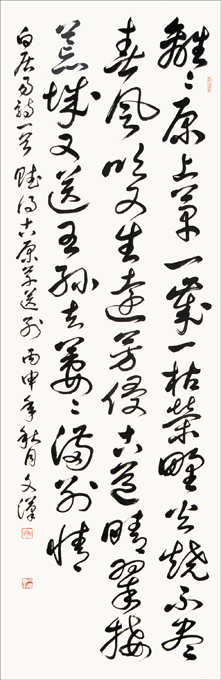 離〻原上草一歲一枯榮野火燒不盡
春風吹又生遠芳侵古道晴翠接
荒城又送王孫去萋〻滿別情
白居易詩一首賦得古原草送別丙申年秋月文漢